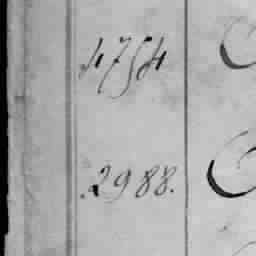 4754
2988.